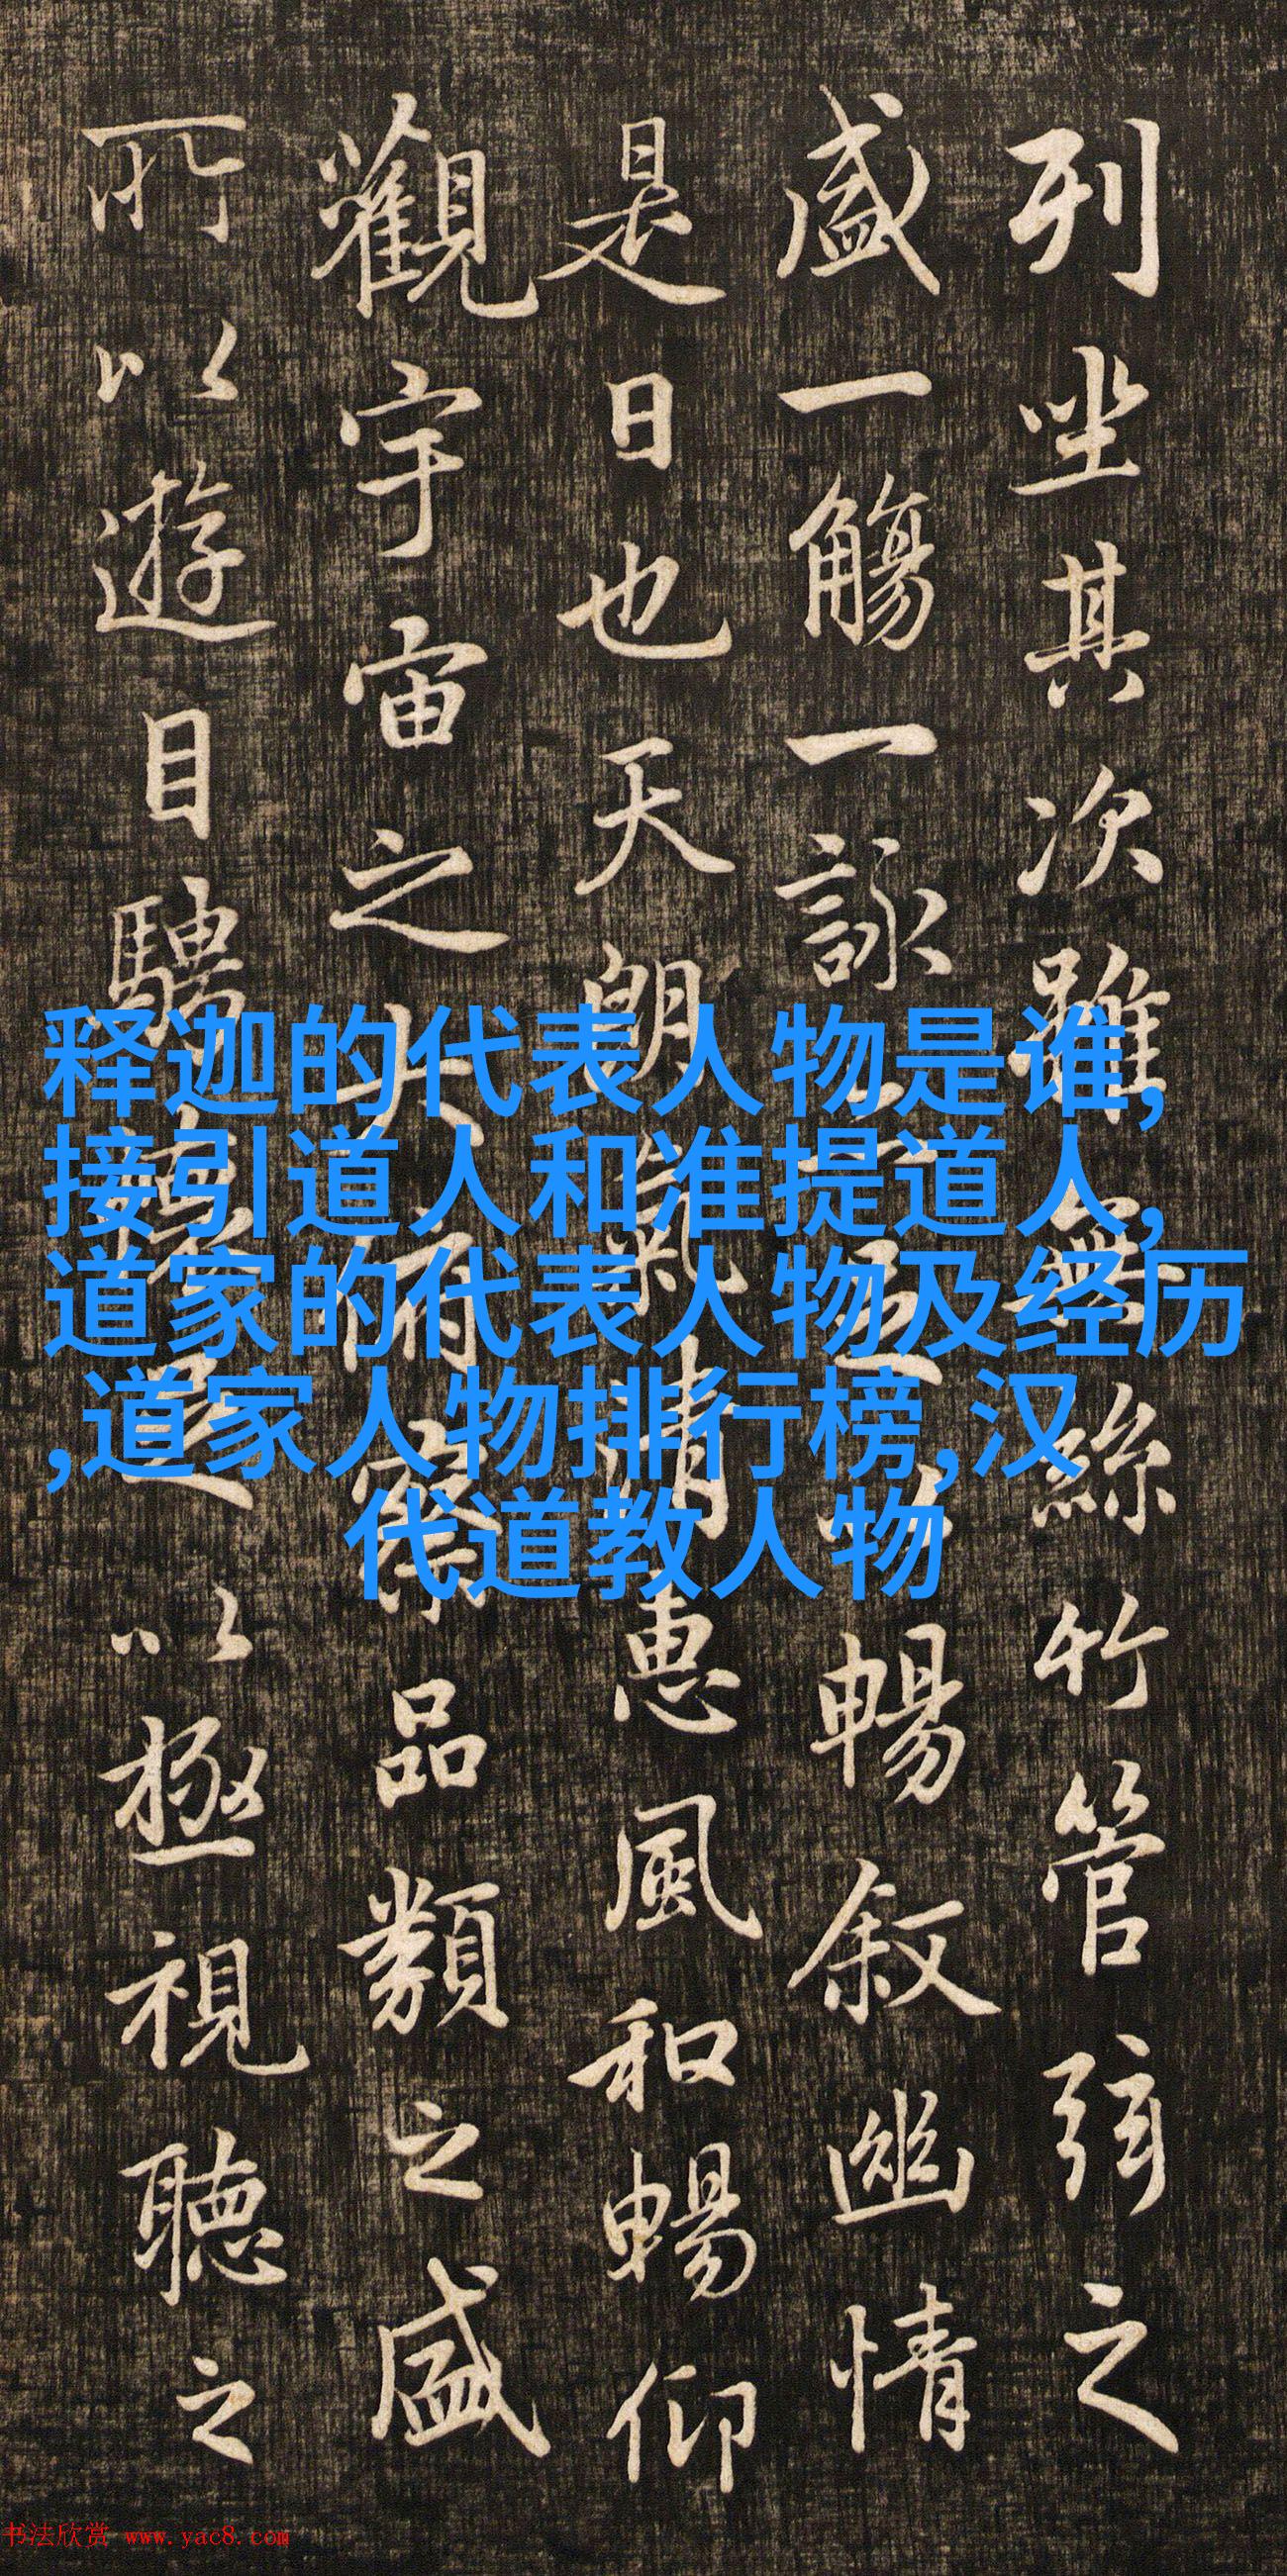 列坐其次雖無絲竹管弦之
盛一觴一詠亦足以暢叙幽情
是日也天朗氣清惠風和暢仰
觀宇宙之大俯察品類之盛
所以遊目騁懷足以極視聽之
释迦的代表人物是谁,
接引道人和准提道人,
道家的代表人物及经历
,道家人物排行榜,汉
代道教人物
书法欣赏 www.yac8.com